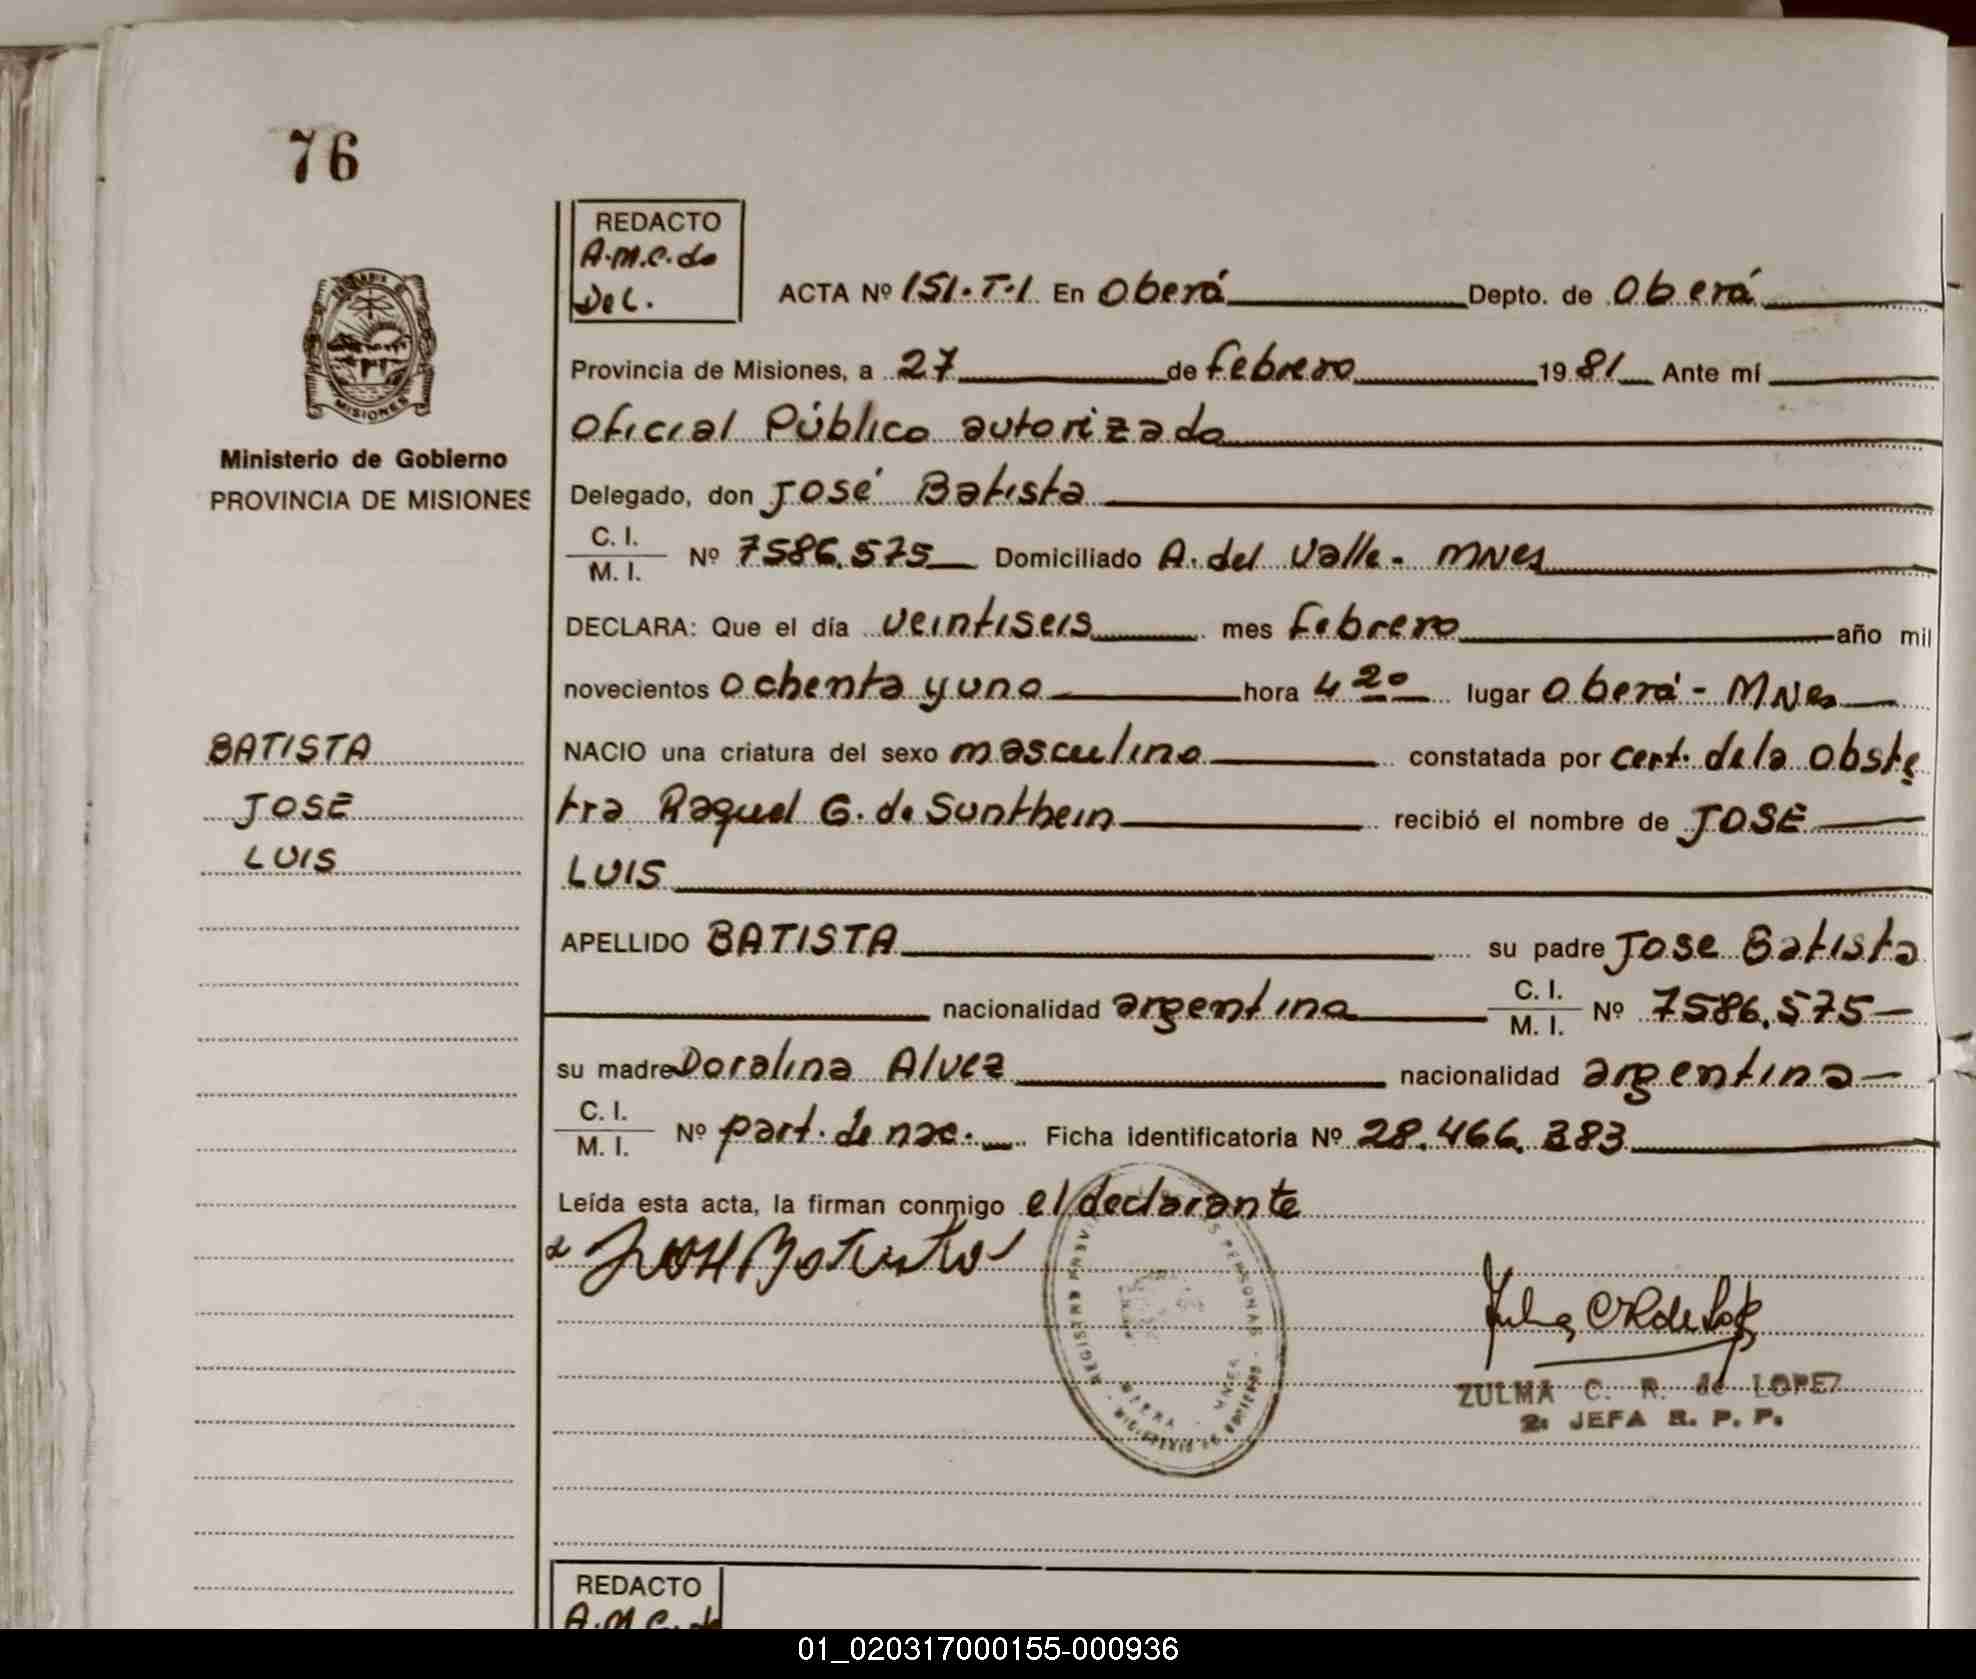 76
REDACTO
A.M.C. de
Del.
ACTA Nº 151.T.1 En Oberá Depto. de Oberá
Provincia de Misiones, a 27 de febrero 1981 Ante mí
Oficial Público autorizado
MISIONES
Ministerio de Gobierno
PROVINCIA DE MISIONES
Delegado, don José Batista
C. I.
M. I. Nº 7586.575 Domiciliado A. del Valle - MNes
DECLARA: Que el día veintiseis mes febrero año mil
novecientos ochenta y uno hora 4 20 lugar Oberá - MNes
BATISTA
JOSE
LUIS
NACIO una criatura del sexo masculino constatada por cert. de la obste
tra Raquel G. de Sunthein recibió el nombre de JOSE
LUIS
APELLIDO BATISTA su padre Jose Batista
nacionalidad argentina C. I.
M. I. Nº 7586.575
su madre Doralina Alvez nacionalidad argentina
C. I.
M. I. Nº part. de nac. Ficha identificatoria Nº 28.466.383
Leída esta acta, la firman conmigo el declarante
José Batista
ZULMA C. R. de LOPEZ
2: JEFA R. P. P.
REDACTO
A.M.C. de
01_020317000155-000936